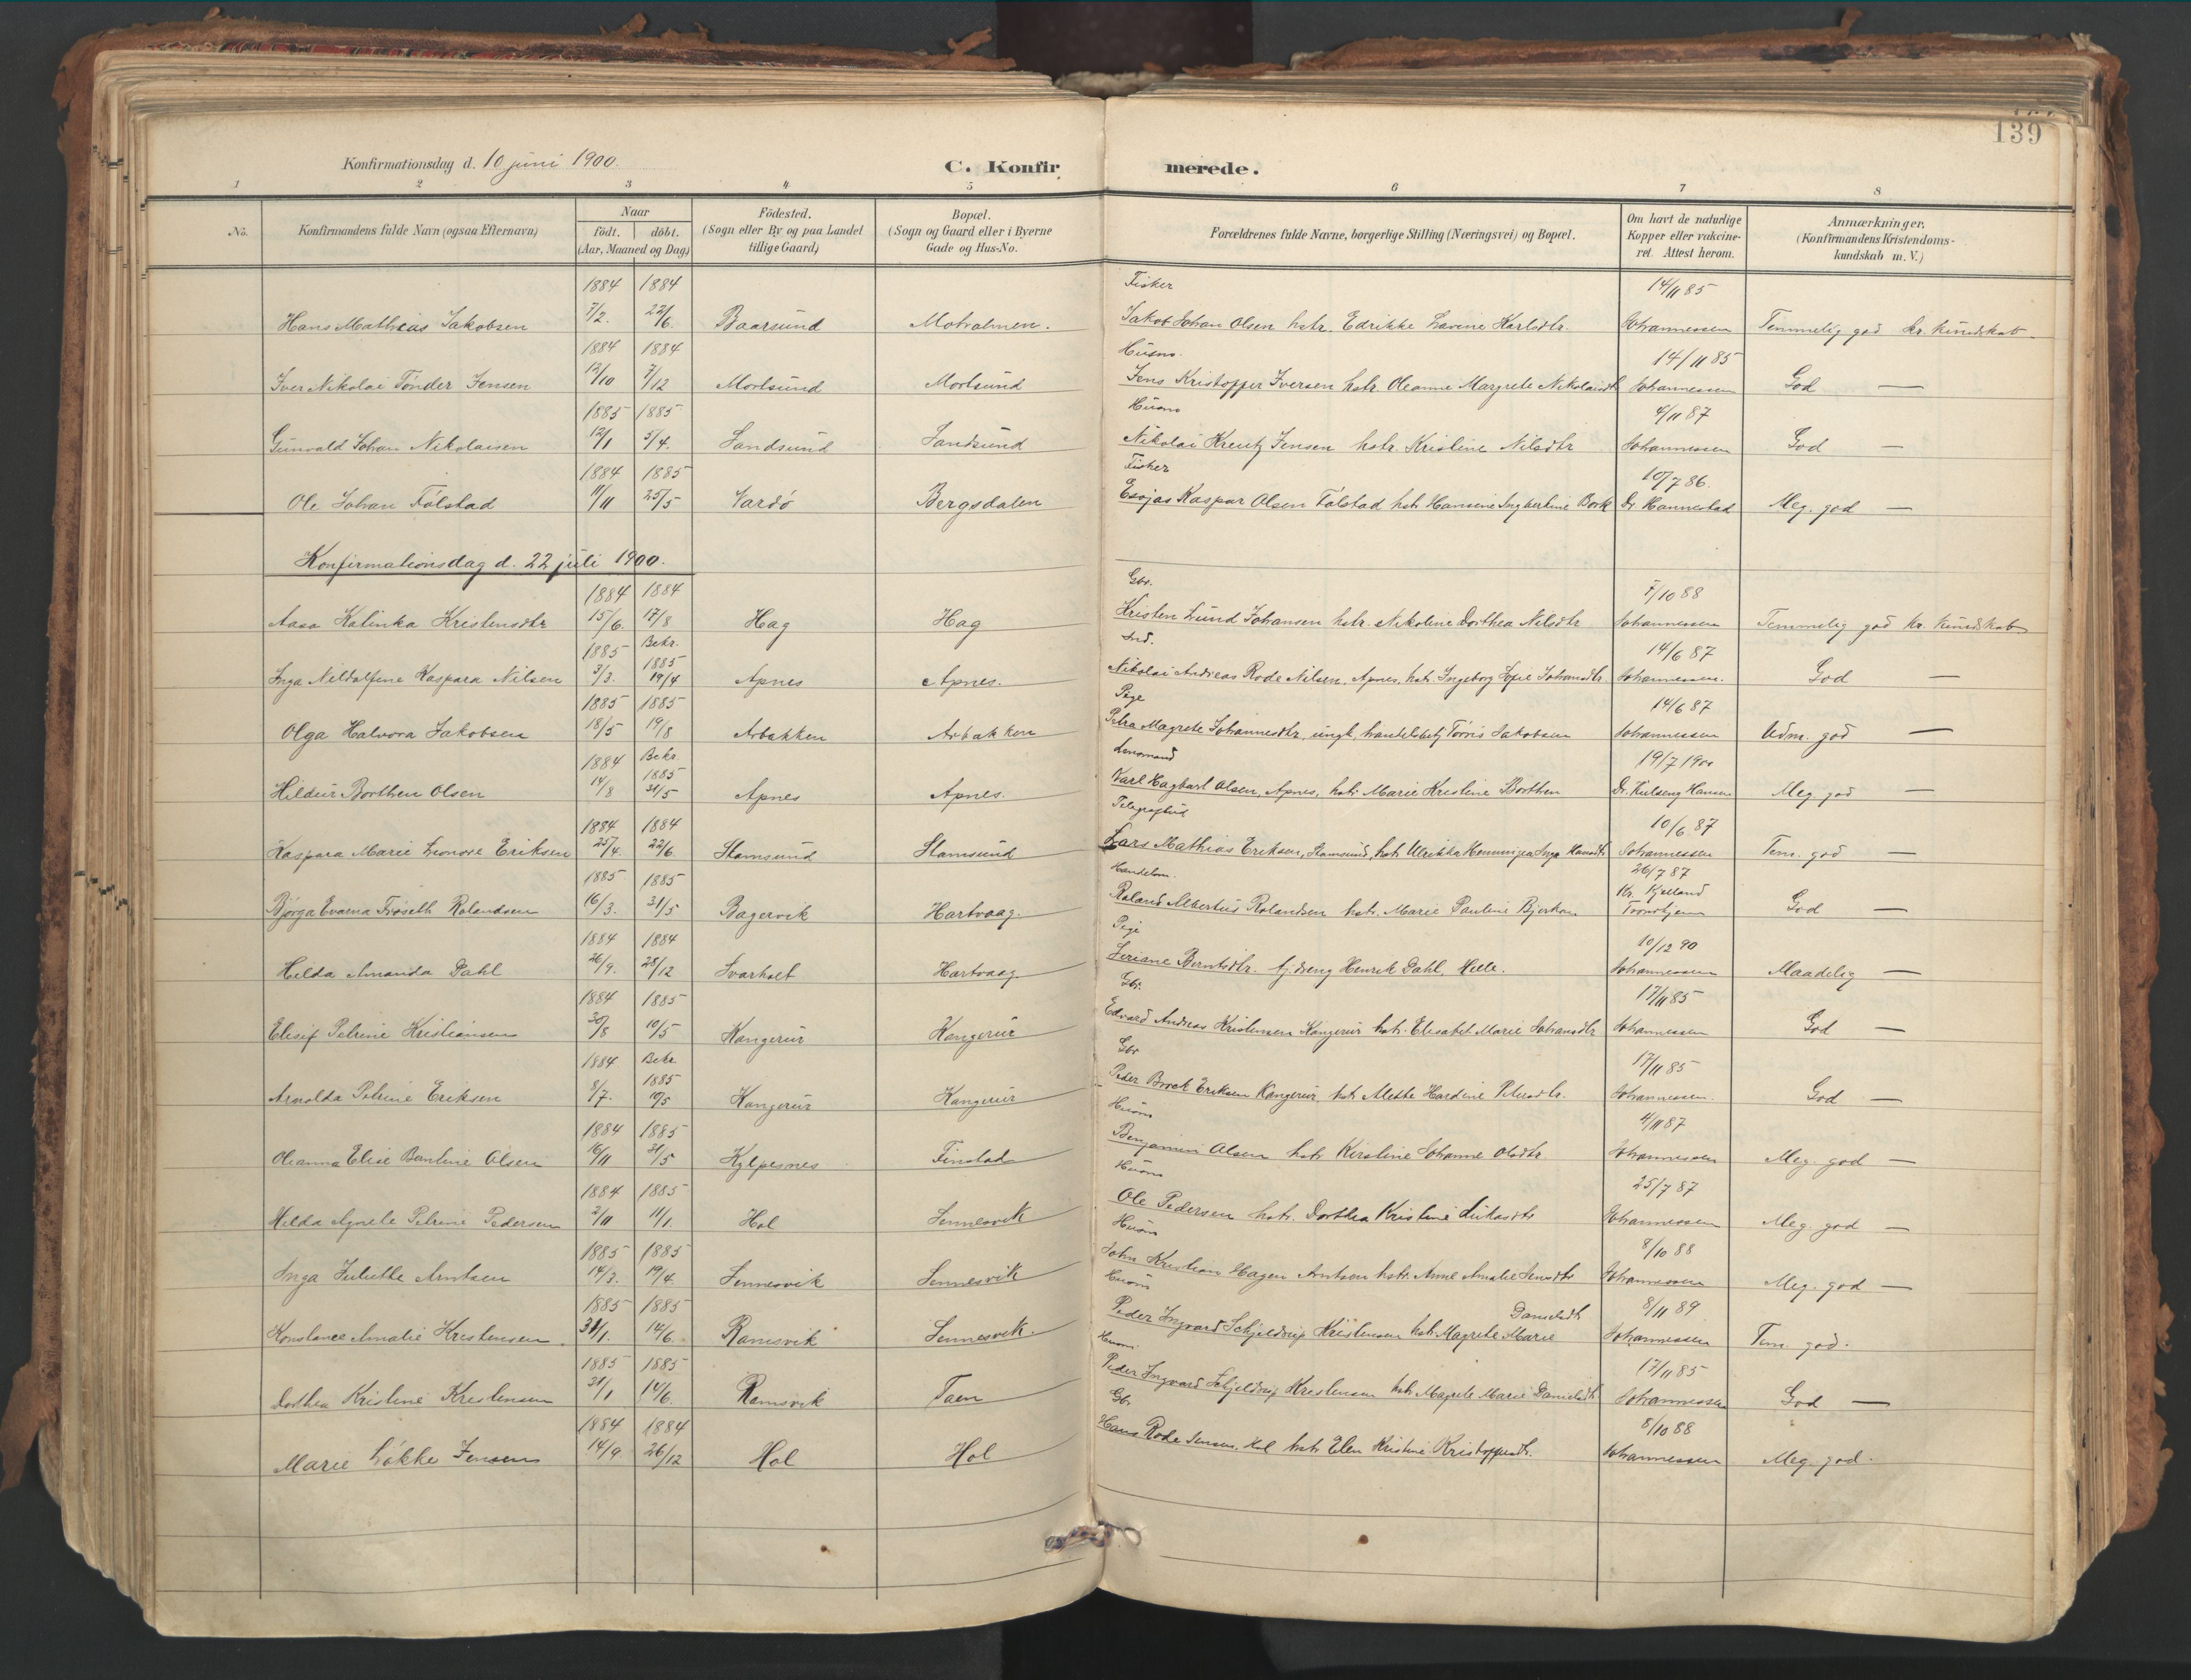 139
Konfirmationsdag d. 10 juni 1900.
C. Konfirmerede.
1 2 3 4 5 6 7 8
No.
Konfirmandens fulde Navn (ogsaa Efternavn)
Naar
födt. döbt.
(Aar, Maaned og Dag)
Födested.
(Sogn eller By og paa Landet
tillige Gaard)
Bopæl.
(Sogn og Gaard eller i Byerne
Gade og Hus-No.
Forældrenes fulde Navne, borgerlige Stilling (Næringsvei) og Bopæl.
Om havt de naturlige
Kopper eller vakcine-
ret. Attest herom.
Anmærkninger.
(Konfirmandens Kristendoms-
kundskab m. V.)
1884 1884 Fisker 14/11 85
Hans Mathias Jakobsen 7/2. 22/6. Baarsund Moholmen. Jakob Johan Olsen hstr. Edrikke Lavine Karlsdtr. Johannessen Temmelig god kr. kundskab
1884 1884 Husm. 14/11 85
Iver Nikolai Tønder Jensen 12/10 7/12 Mortsund Mortsund Jens Kristoffer Iversen hstr. Oleanne Margrete Nikolaisdtr Johannessen God —
1885 1885 Husm 4/11 87
Gunvald Johan Nikolaisen 12/1 5/4. Sandsund Sandsund Nikolai Kreutz Jensen hstr. Kristine Nilsdtr Johannessen God —
1884 1885 Fisker 10/7 86.
Ole Johan Følstad 11/11 25/5 Vardø Bergsdalen Esajas Kaspar Olsen Følstad hstr Hansine Ingbertine Bork Dr. Hannestad Meg. god —
Konfirmationsdag d. 22 juli 1900.
1884 1884 Gbr. 7/10 88
Aasa Katinka Kristensdtr 15/6. 17/8 Hag Hag Kristen Lund Johansen hstr. Nikoline Dorthea Nilsdtr Johannessen Temmelig god kr. kundskab
1885 Bekr. 1885 Ind. 14/6 87
Inga Nildalfine Kaspara Nilsen 3/3. 19/4 Apnes Apnes. Nikolai Andreas Rode Nilsen, Apnes, hstr. Ingeborg Sofie Johansdtr. Johannessen. God —
1885 1885 Pige 14/6 87
Olga Halvora Jakobsen 18/5 19/8 Arbakken Arbakken Petra Magrete Johannesdtr, ungk. handelsbetj Tørris Jakobsen Johannessen Udm. god —
1884 Bekr. 1885 Lensmand 19/7 1900
Hildur Borthen Olsen 14/8 31/5 Apnes Apnes. Karl Hagbart Olsen, Apnes, hstr Marie Kristine Borthen Dr. Kulseng Hansen Meg. god —
1884 1884 10/6 87
Kaspara Marie Leonore Eriksen 25/4. 22/6. Stamsund Stamsund Lars Mathias Eriksen, Stamsund, hstr Ulrikka Hemmingea Inga Hansdtr Johannessen Tem. god —
1885 1885 Handelsm. 26/7 87
Bjørga Evarna Frøseth Rolandsen 16/3. 31/5 Bagervik Hartvaag. Roland Albertus Rolandsen hstr. Marie Pauline Bjerkan Kr. Kjelland Trondhjem God —
1884 1884 Pige 10/12 90
Hilda Amanda Dahl 26/9. 28/12 Svarholt Hartvaag Seriane Berntsdtr. Henrik Dahl, Helle. Johannessen Maadelig —
1884 1885 Gbr. 17/11 85
Elisif Petrine Kristiansen 30/8 10/5 Kangerur Kangerur Edvard Andreas Kristensen Kangerur hstr. Elisabet Marie Johansdtr Johannessen God —
1884 Bekr. 1885 Gbr 17/11 85
Arnolda Petrine Eriksen 8/7. 10/5 Kangerur Kangerur Peder Brock Eriksen Kangerur hstr Mette Hardine Petersdtr. Johannessen. God —
1884 1885 Husm 4/11 87
Oleanna Elise Bentine Olsen 16/11 31/5 Kylpesnes Finstad Benjamin Olsen hstr Kirstine Johanne Olsdtr. Johannessen Meg. god —
1884 1885 Husm 25/7 87
Hilda Agnete Petrine Pedersen 2/11 11/1. Hol Sennesvik Ole Pedersen hstr. Dorthea Kristine Lukasdtr Johannessen Meg. god —
1885 1885 Husm 8/10 88
Inga Juliette Arntsen 14/3. 19/4. Sennesvik Sennesvik John Kristian Hagen Arntsen hstr. Anne Amalie Jensdtr Johannessen Meg. god —
1885 1885 Husm Danielsdtr 8/11 89
Konstance Amalie Kristensen. 31/1. 14/6. Ramsvik Sennesvik. Peder Ingvard Schjeldrup Kristensen hstr Magrete Marie Johannessen Tem. god.
1885 1885 Husm 17/11 85
Dorthea Kristine Kristensen 31/1 14/6. Ramsvik Taen Peder Ingvard Schjeldrup Kristensen hstr Magrete Marie Danielsdtr. Johannessen God —
1884 1884 Gbr 8/10 88
Marie Løkke Jensen 14/9. 26/12 Hol Hol Hans Rode Jensen, Hol hstr Elen Kristine Kristoffersdtr. Johannessen Meg. god.